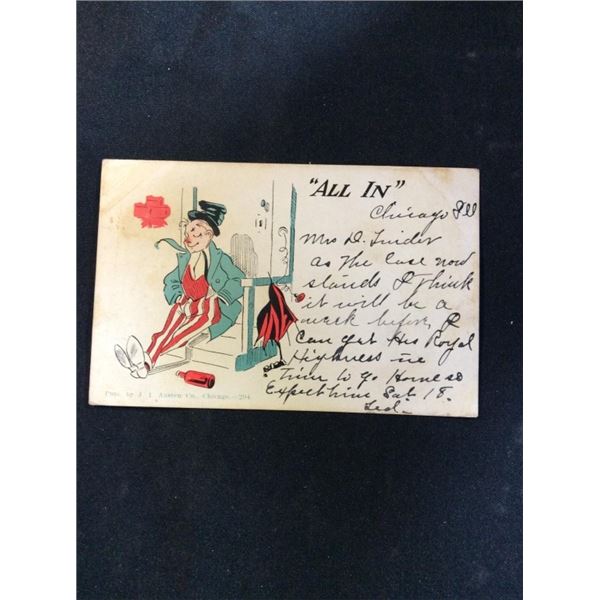 "ALL IN"
Chicago Ill
Mrs D. Snider
as the case now
stands I think
it will be a
week before I
can get His Royal
Highness in
Trim to go Home so
Expect him Sat 18.
Ted.
Pub. by J. I. Austen Co., Chicago.—204